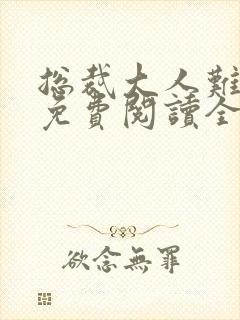 總裁大人難
免費閱讀全
欲念無罪